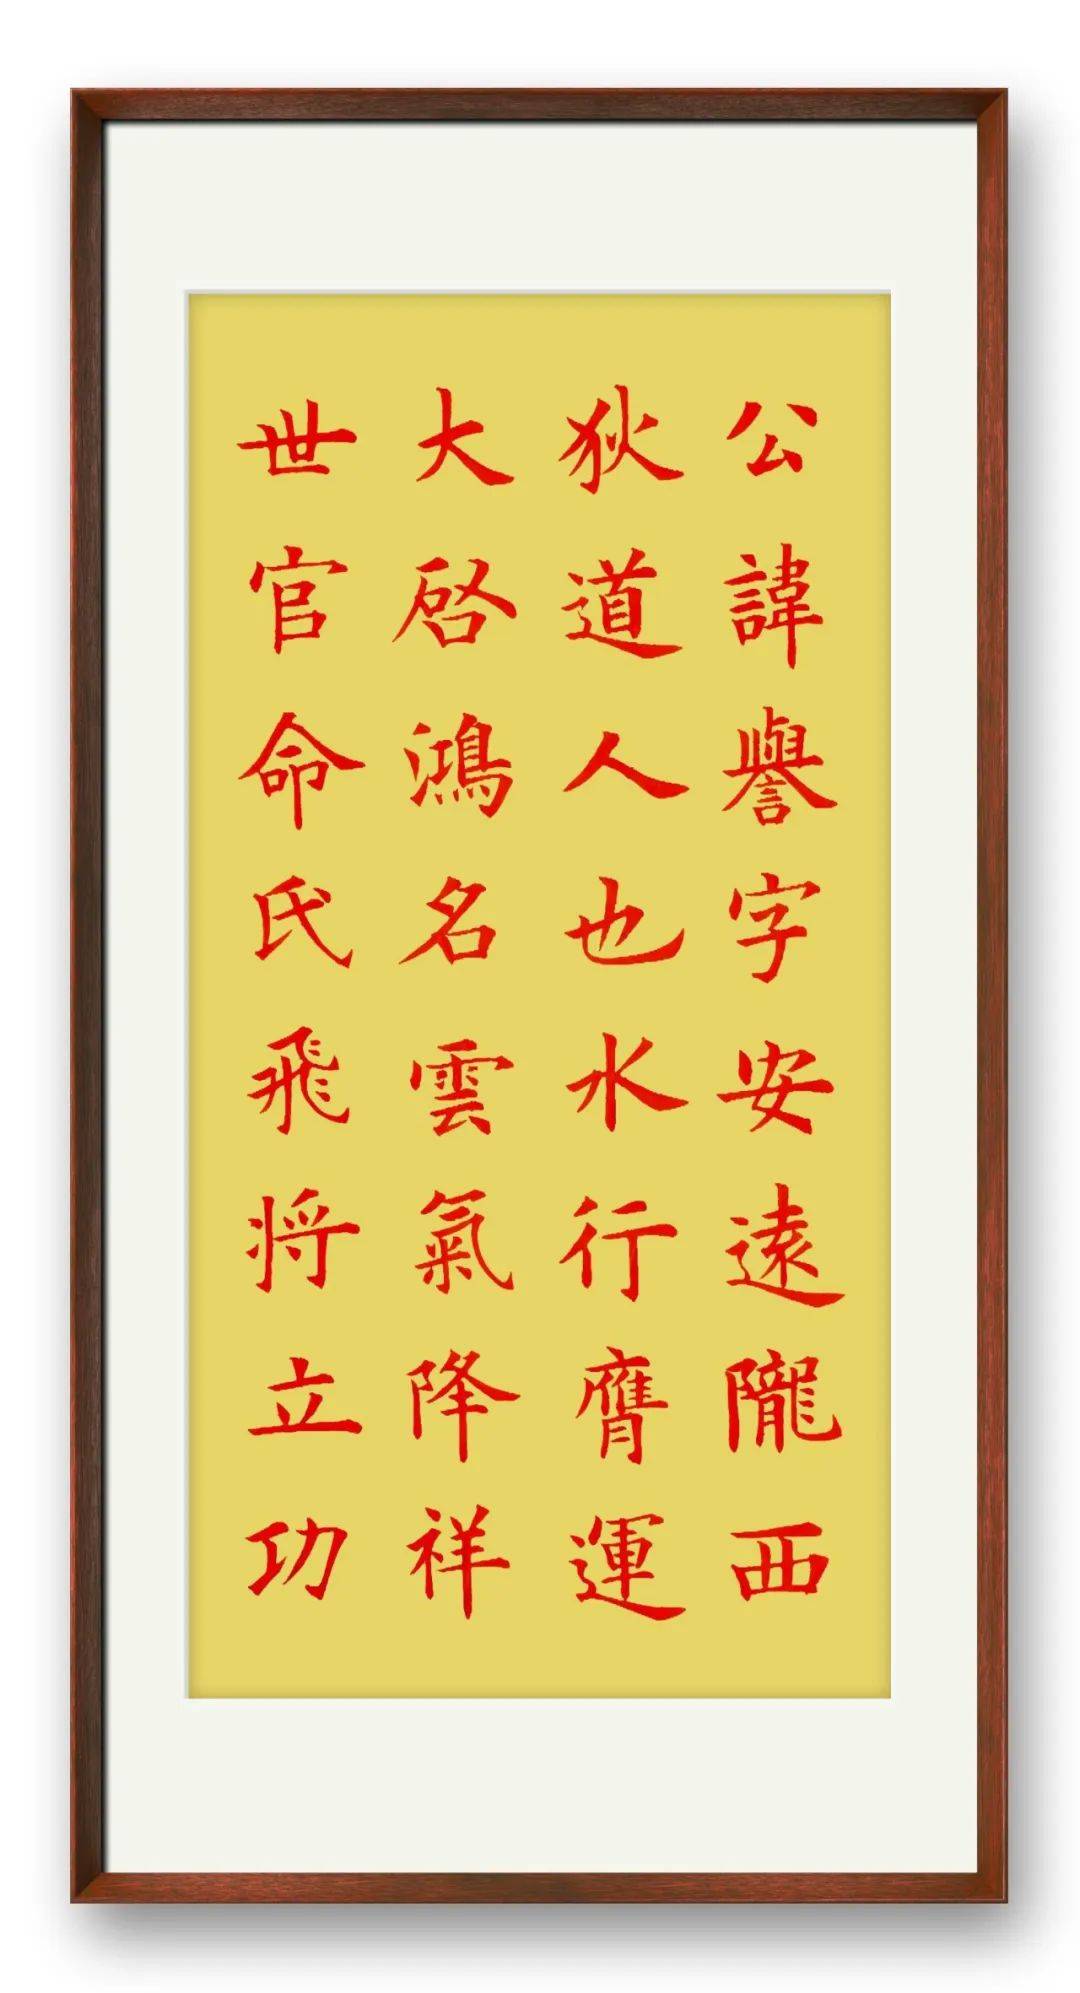 公諱譽字安遠隴西
狄道人也水行膺運
大啓鴻名雲氣降祥
世官命氏飛將立功